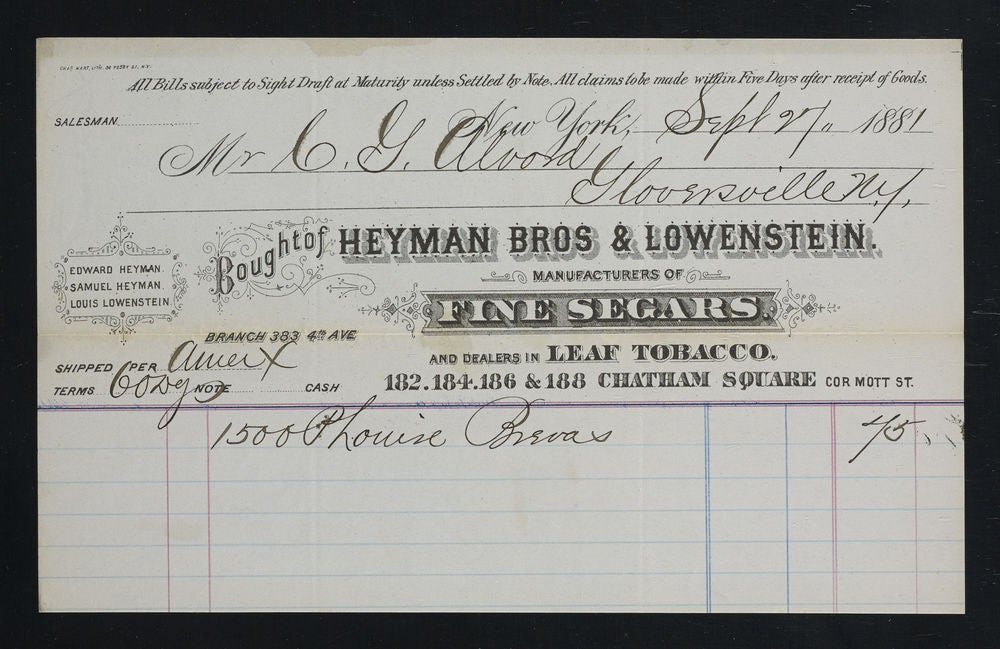 CHAS HART, LITH. 36 VESEY ST. N.Y.
All Bills subject to Sight Draft at Maturity unless Settled by Note. All claims to be made within Five Days after receipt of Goods.
SALESMAN
New York, Sept 27 1881
Mr C. G. Alvord
Gloversville N.Y.
Bought of HEYMAN BROS & LOWENSTEIN.
EDWARD HEYMAN.
SAMUEL HEYMAN.
LOUIS LOWENSTEIN.
MANUFACTURERS OF
FINE SEGARS.
BRANCH 383 4th AVE
AND DEALERS IN LEAF TOBACCO.
SHIPPED PER Amer X
TERMS 60 Dy NOTE CASH
182.184.186 & 188 CHATHAM SQUARE COR MOTT ST.
1500 Louise Brevas 45